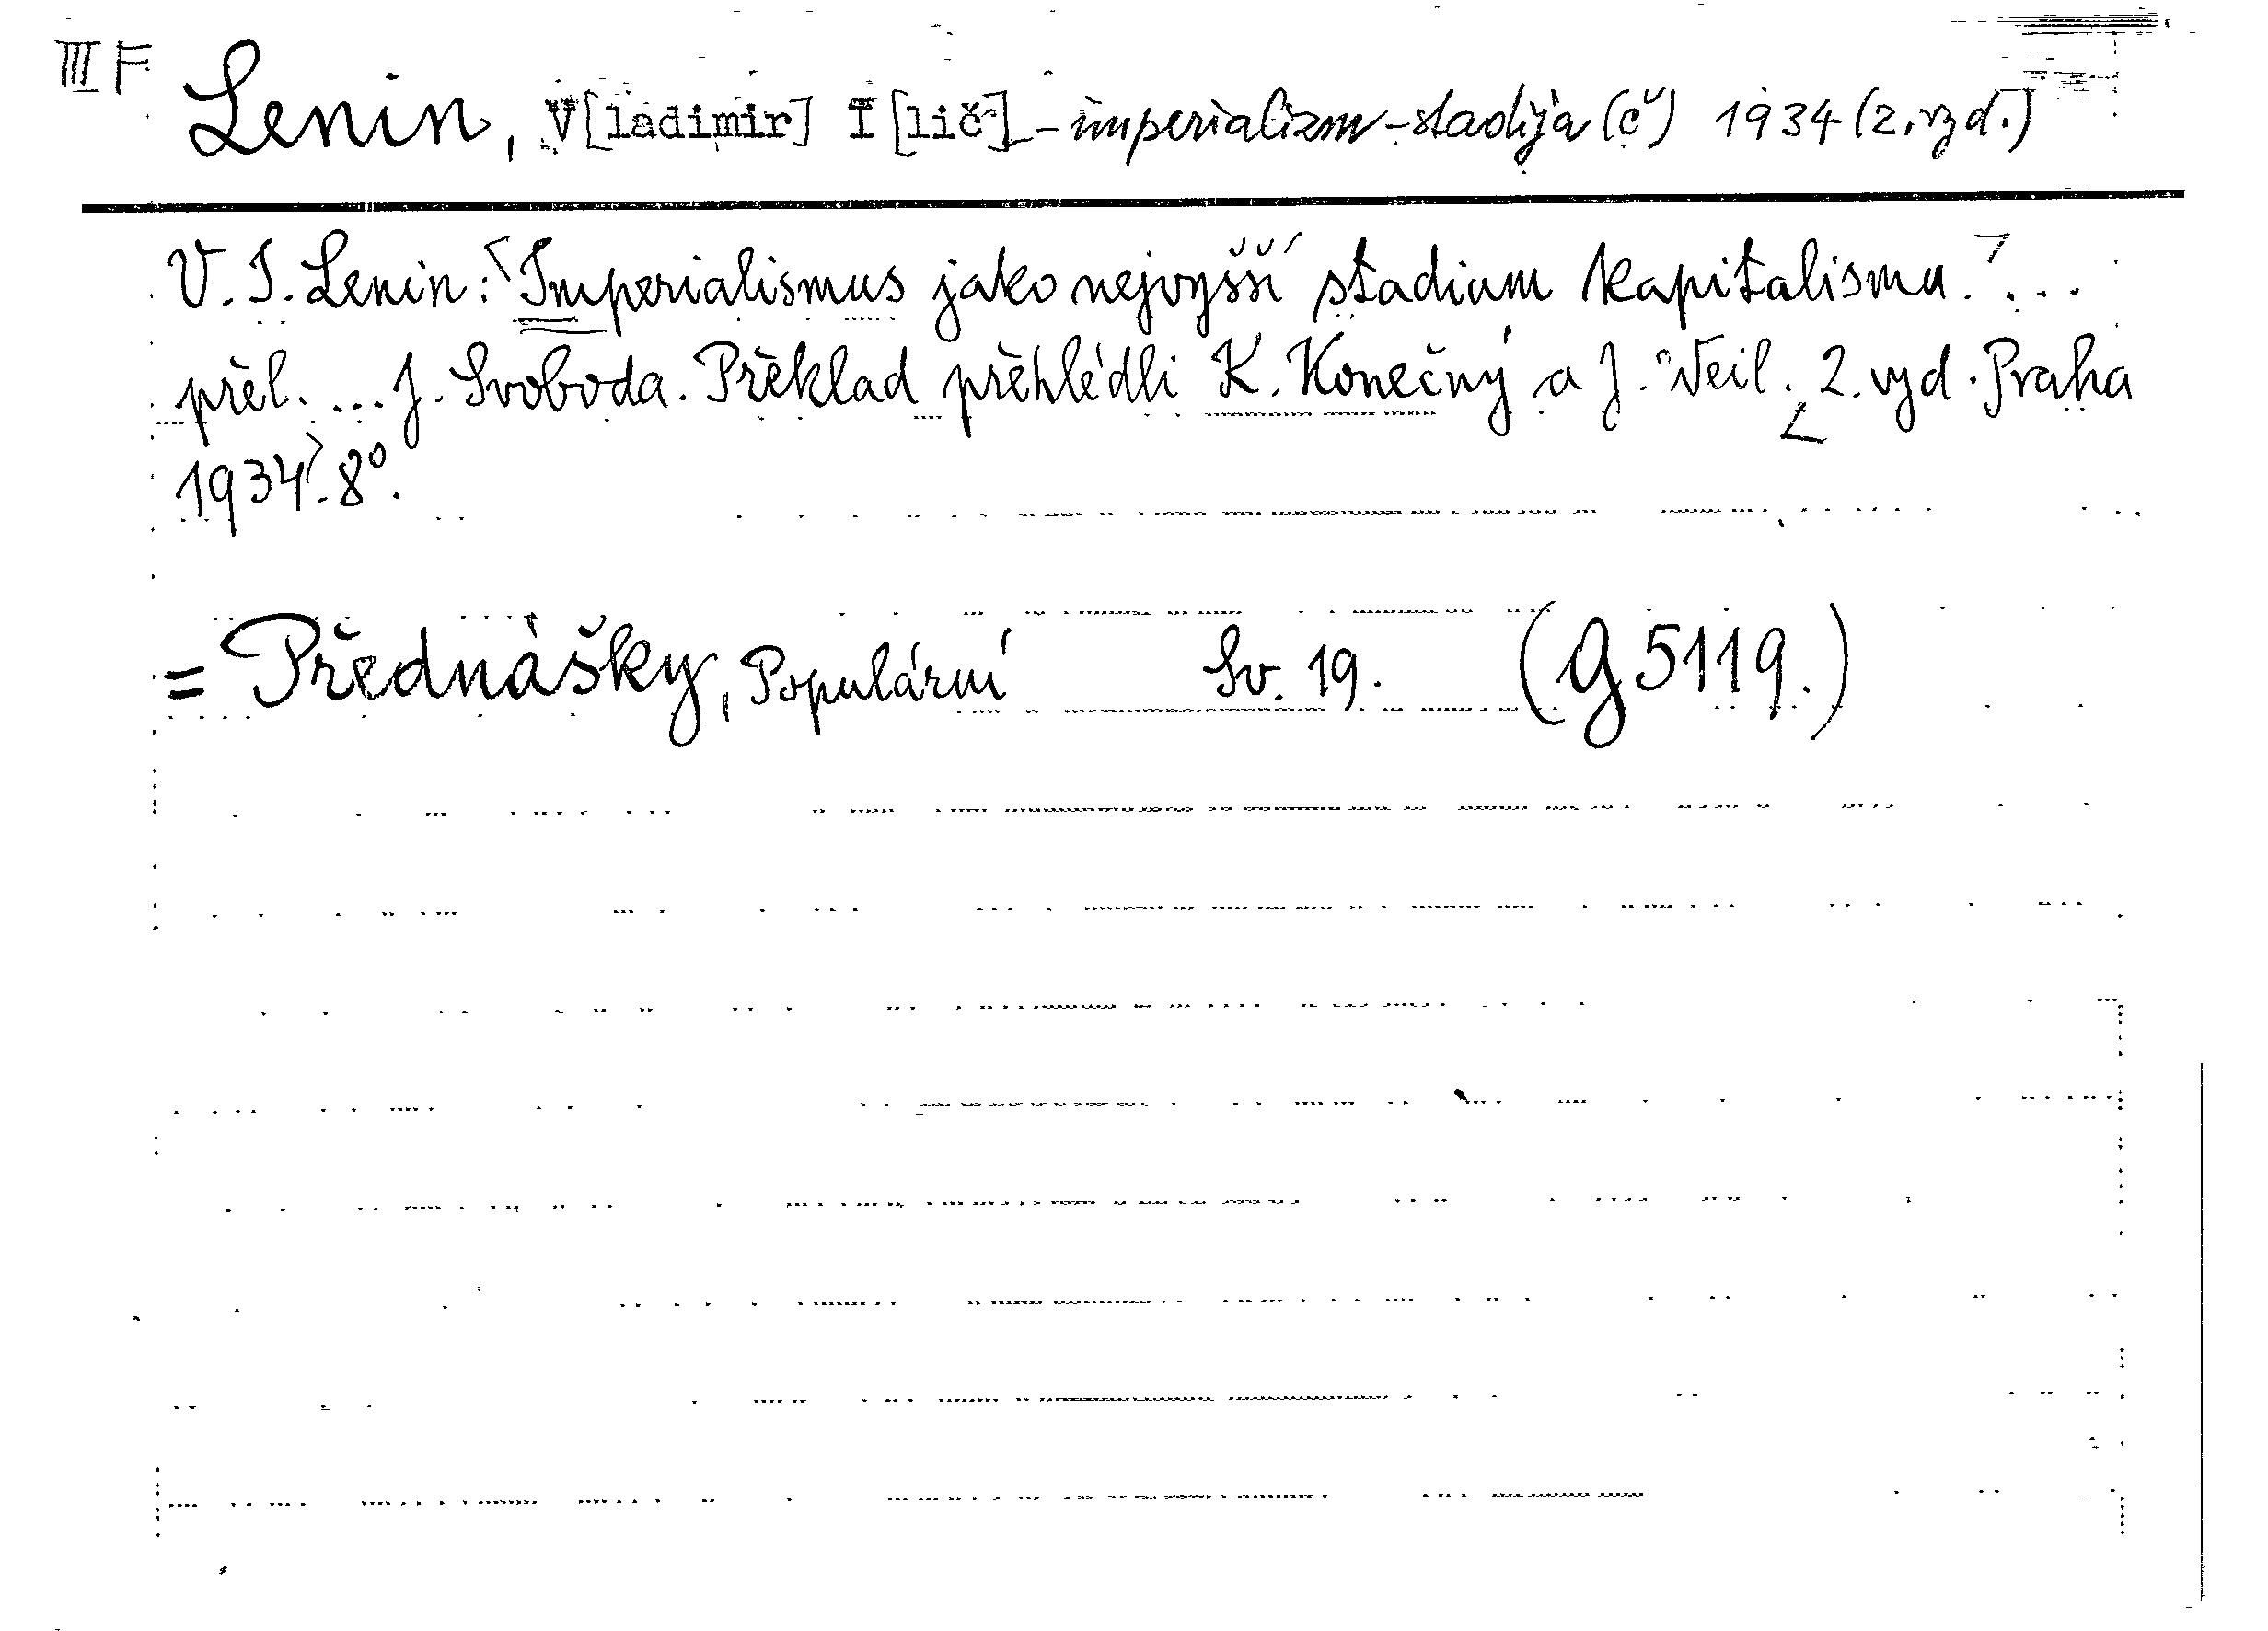 III F
Lenin, V[ladimir] I[lič] - imperializm - stadija (č) 1934 (2. vyd.)
V. I. Lenin: Imperialismus jako nejvyšší stadium kapitalismu. ...
přel. ... J. Svoboda. Překlad přehlédli K. Konečný a J. Weil. 2. vyd. Praha
1934. 8°.
= Přednášky, Populární Sv. 19. (G 5119.)